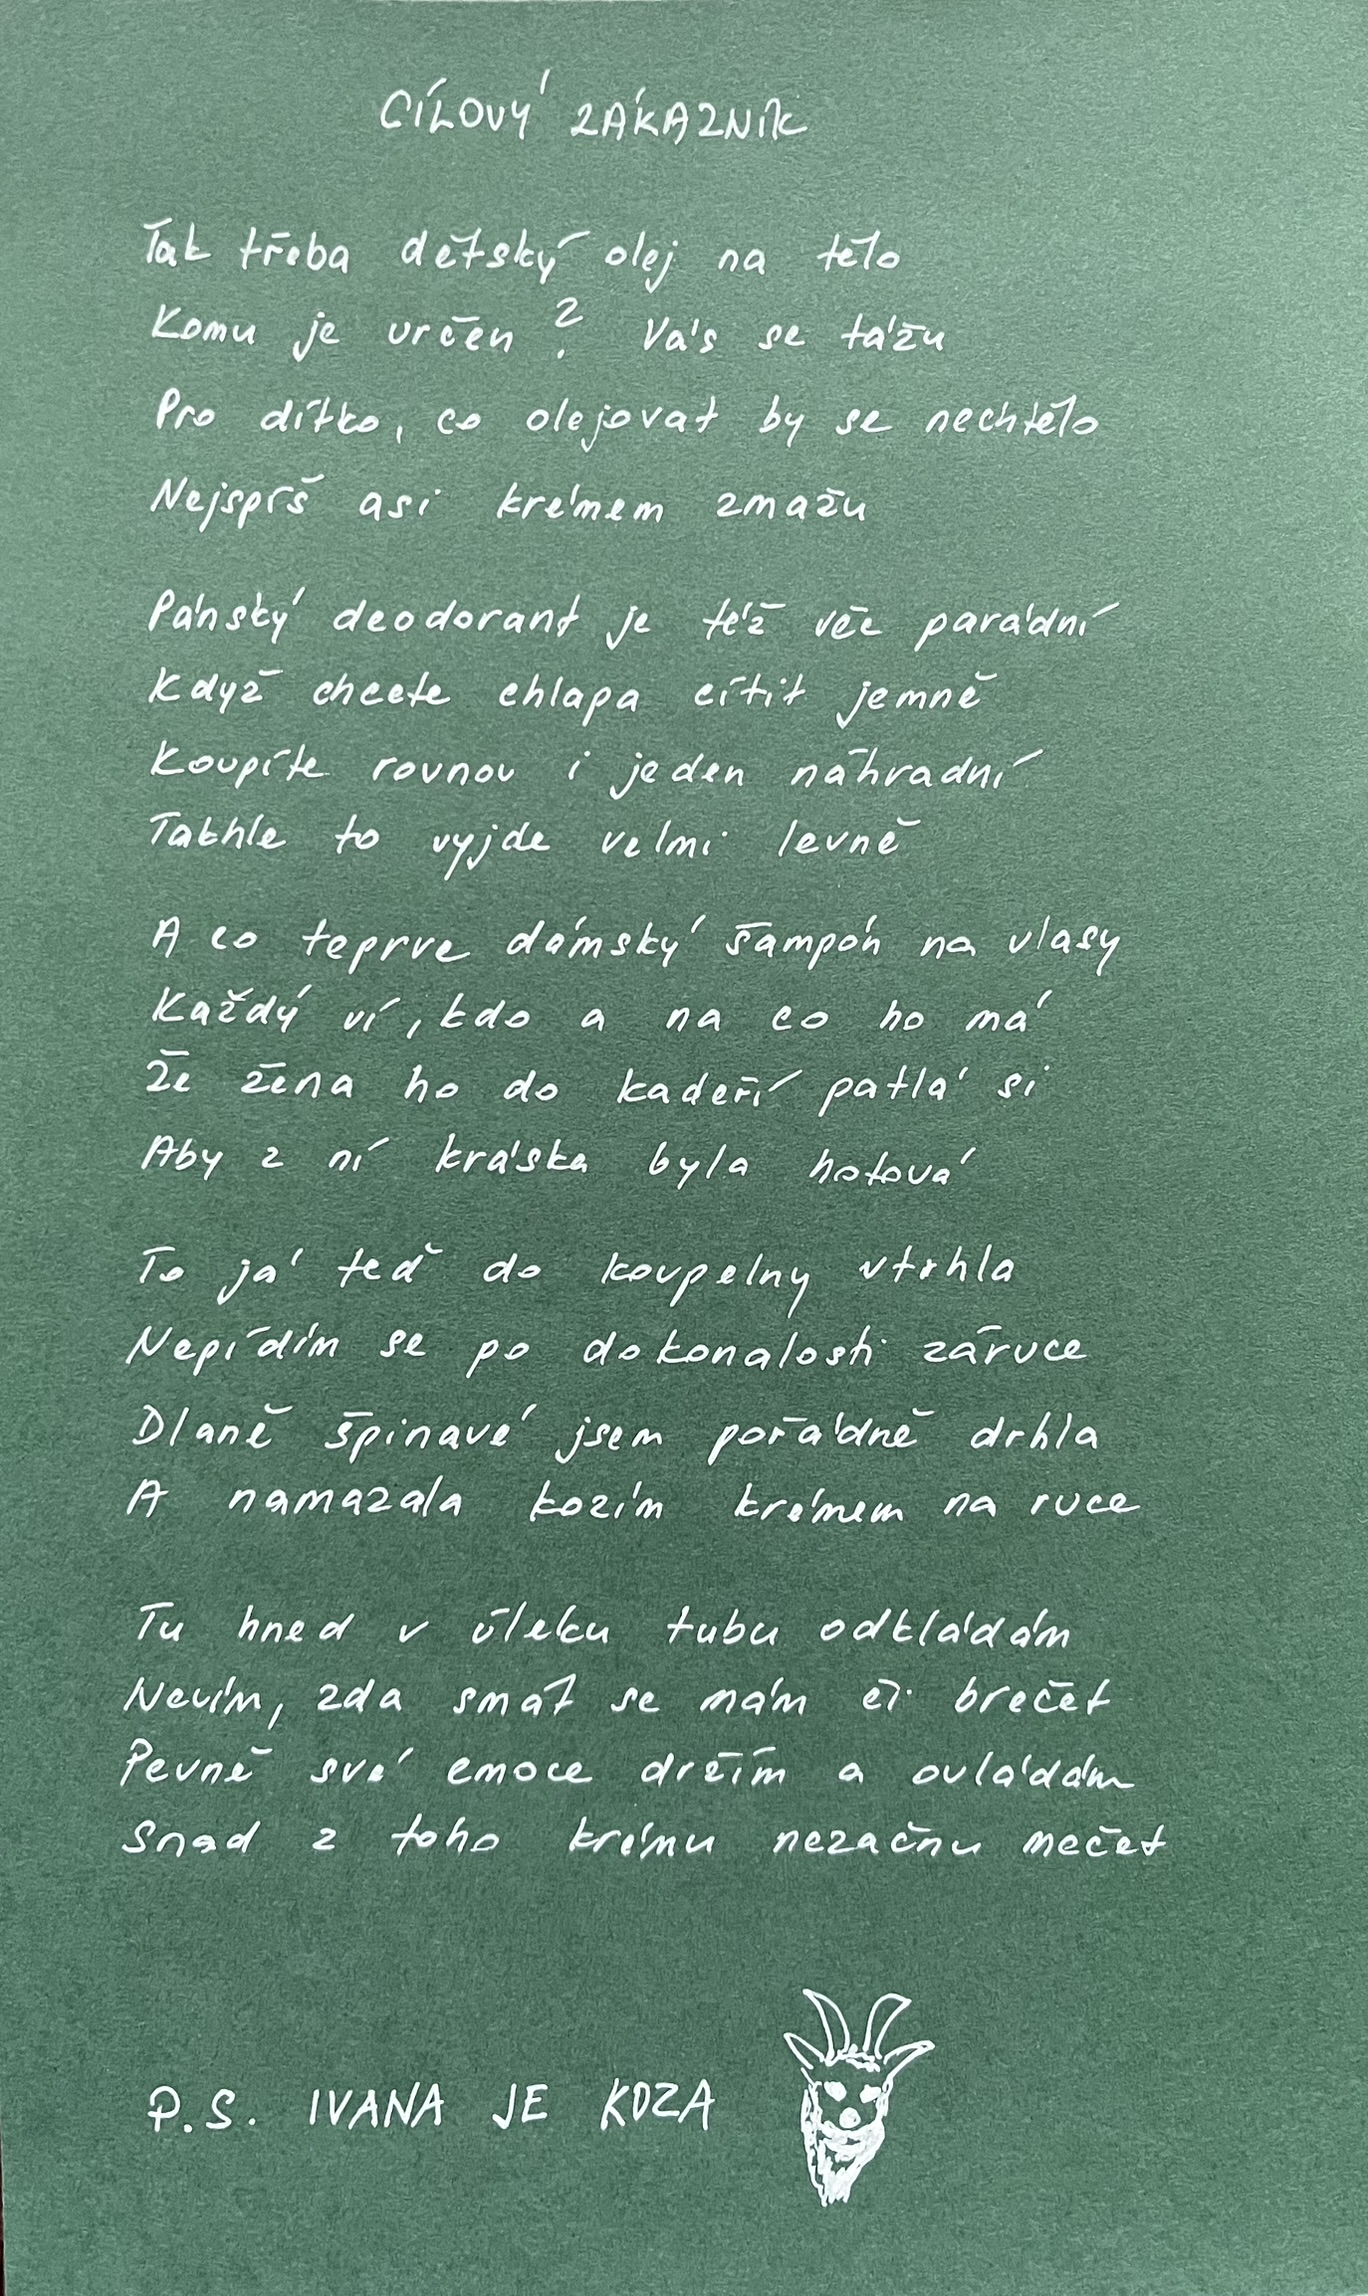 CÍLOVÝ ZÁKAZNÍK
Tak třeba dětský olej na tělo
Komu je určen? Vás se tážu
Pro dítko, co olejovat by se nechtělo
Nejspíš asi krémem zmažu
Pánský deodorant je též věc parádní
Když chcete chlapa cítit jemně
Koupíte rovnou i jeden náhradní
Takhle to vyjde velmi levně
A co teprve dámský šampón na vlasy
Každý ví, kdo a na co ho má
Že žena ho do kadeří patlá si
Aby z ní kráska byla hotová
To já teď do koupelny vtrhla
Nepídím se po dokonalosti záruce
Dlaně špinavé jsem pořádně drhla
A namazala kozím krémem na ruce
Tu hned v úleku tubu odkládám
Nevím, zda smát se mám či brečet
Pevně své emoce držím a ovládám
Snad z toho krému nezačnu mečet
P.S. IVANA JE KOZA